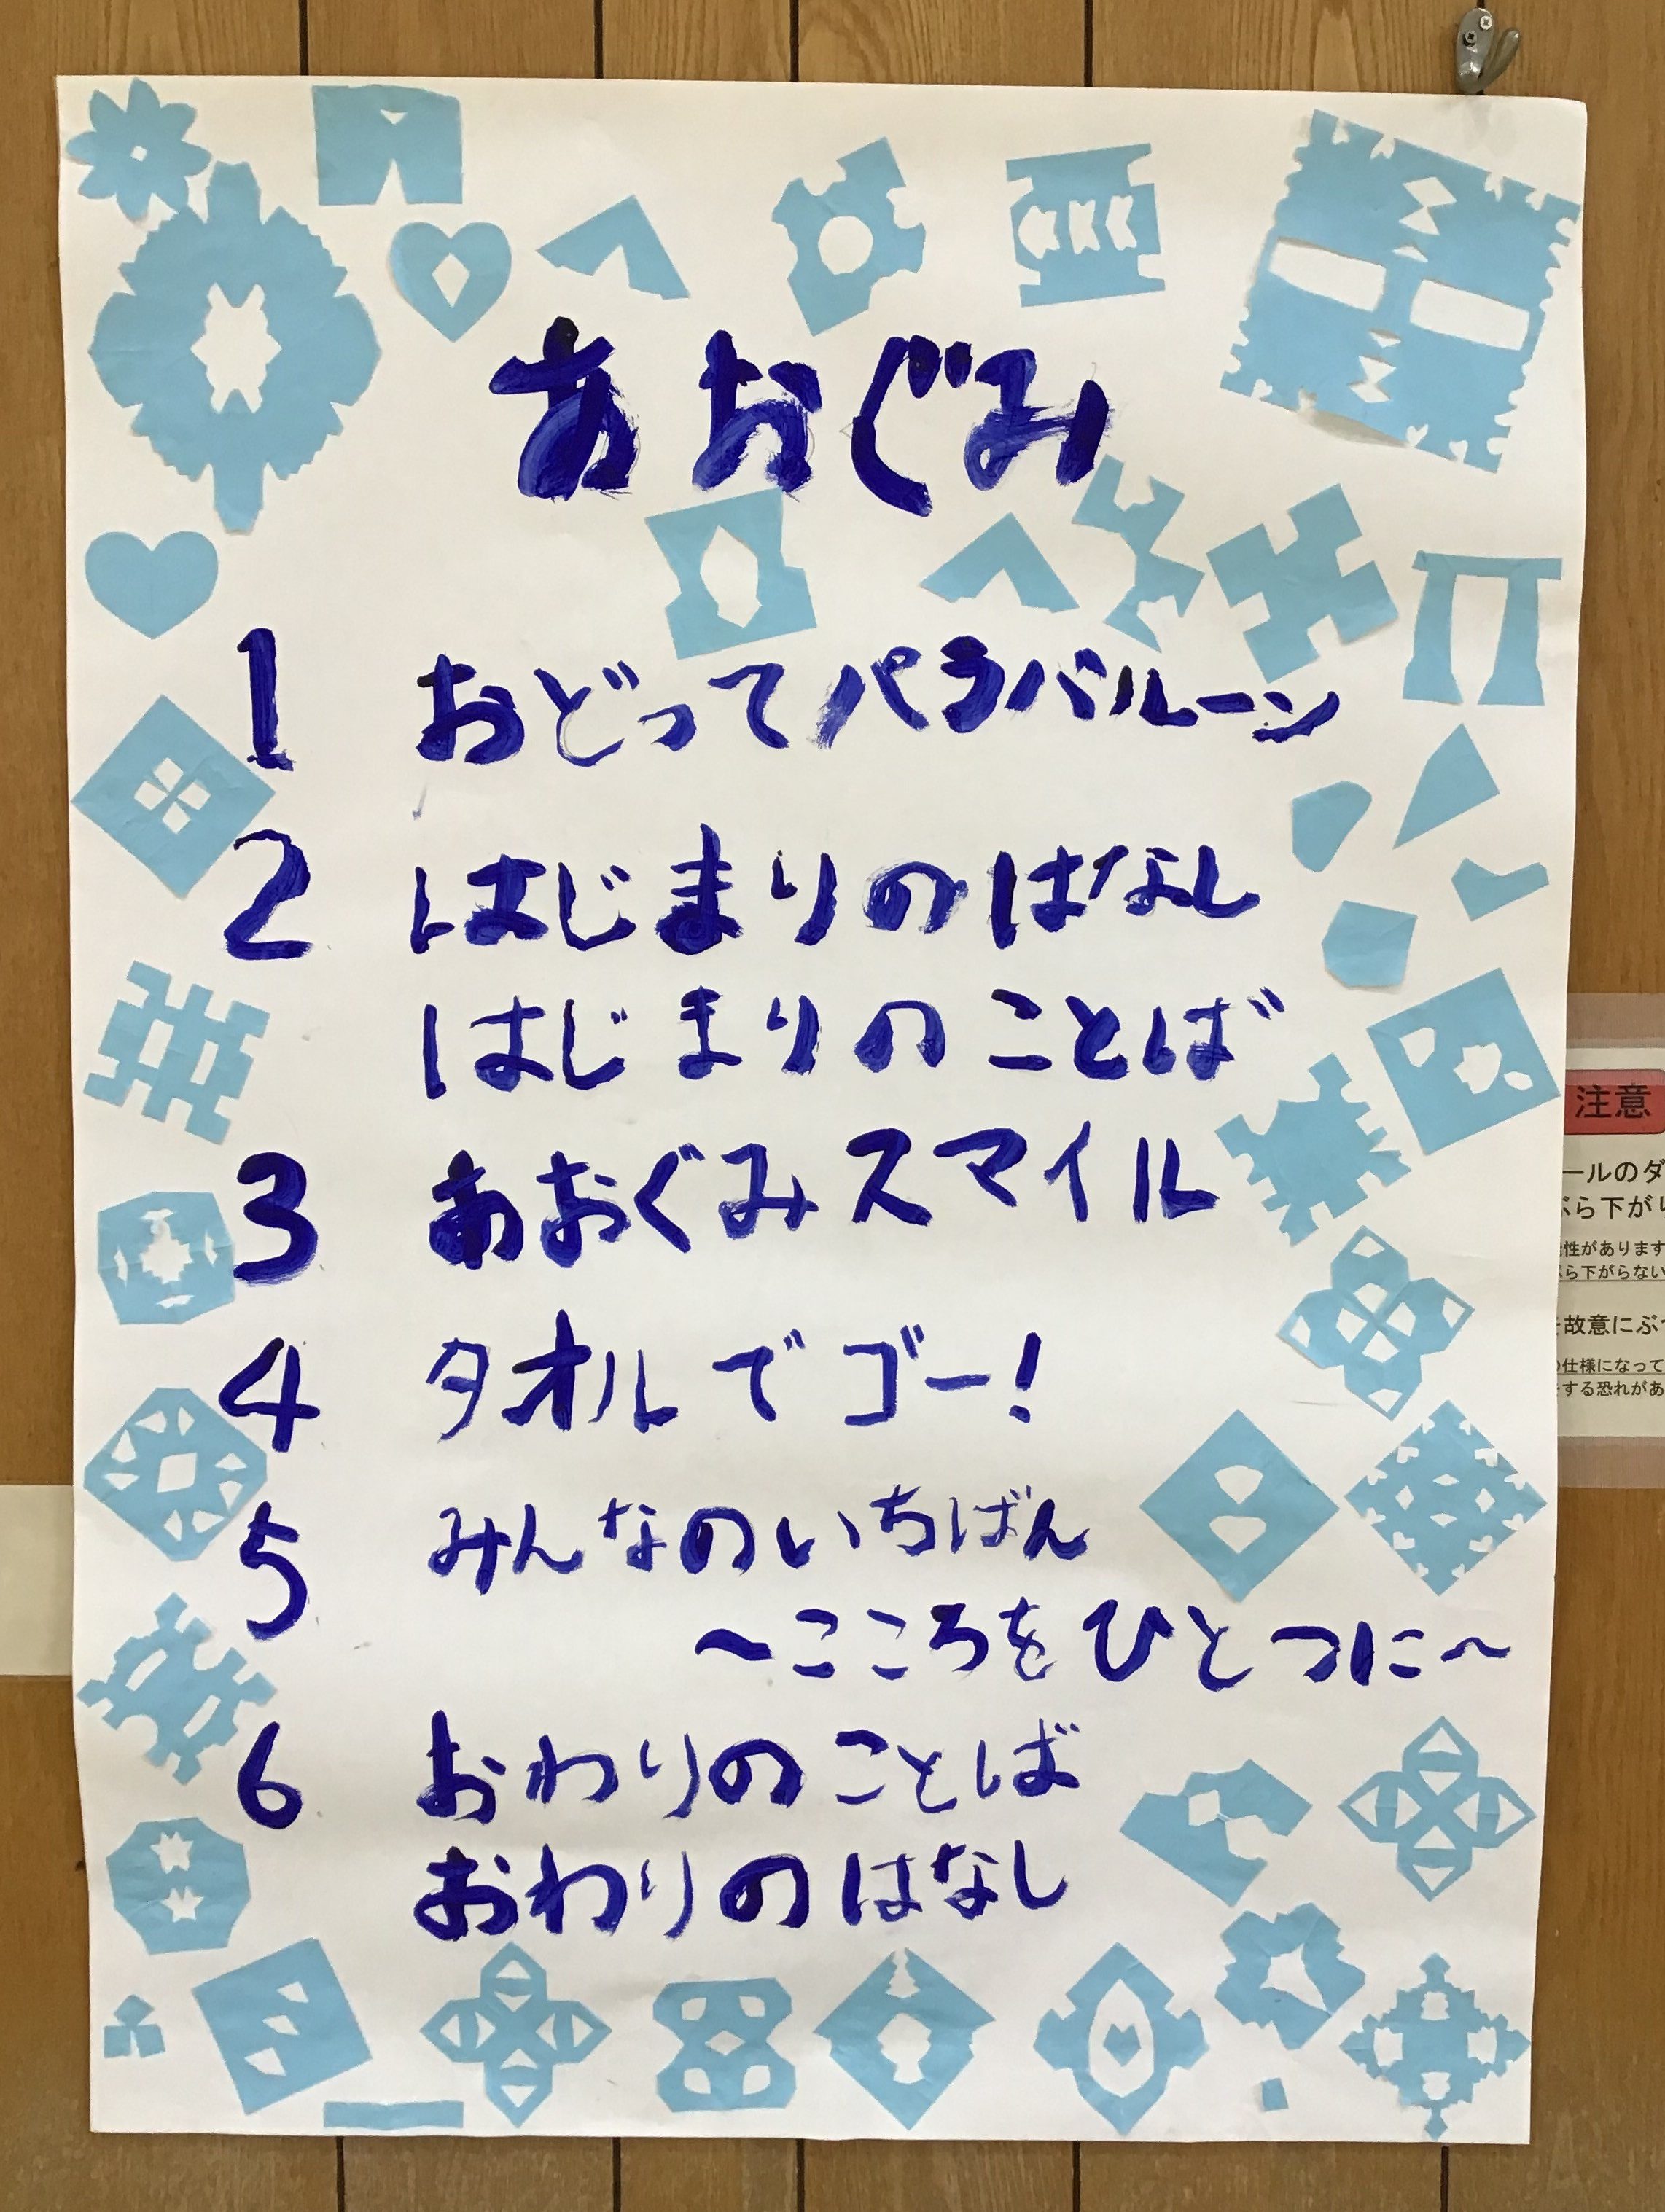 あおぐみ
1 おどってパラバルーン
2 はじまりのはなし
はじまりのことば
3 あおぐみスマイル
4 タオルでゴー!
5 みんなのいちばん
～こころをひとつに～
6 おわりのことば
おわりのはなし
注意
ールのダ
ぶら下がり
性があります
ぶら下がらない
故意にぶつ
の仕様になって
をする恐れがあ